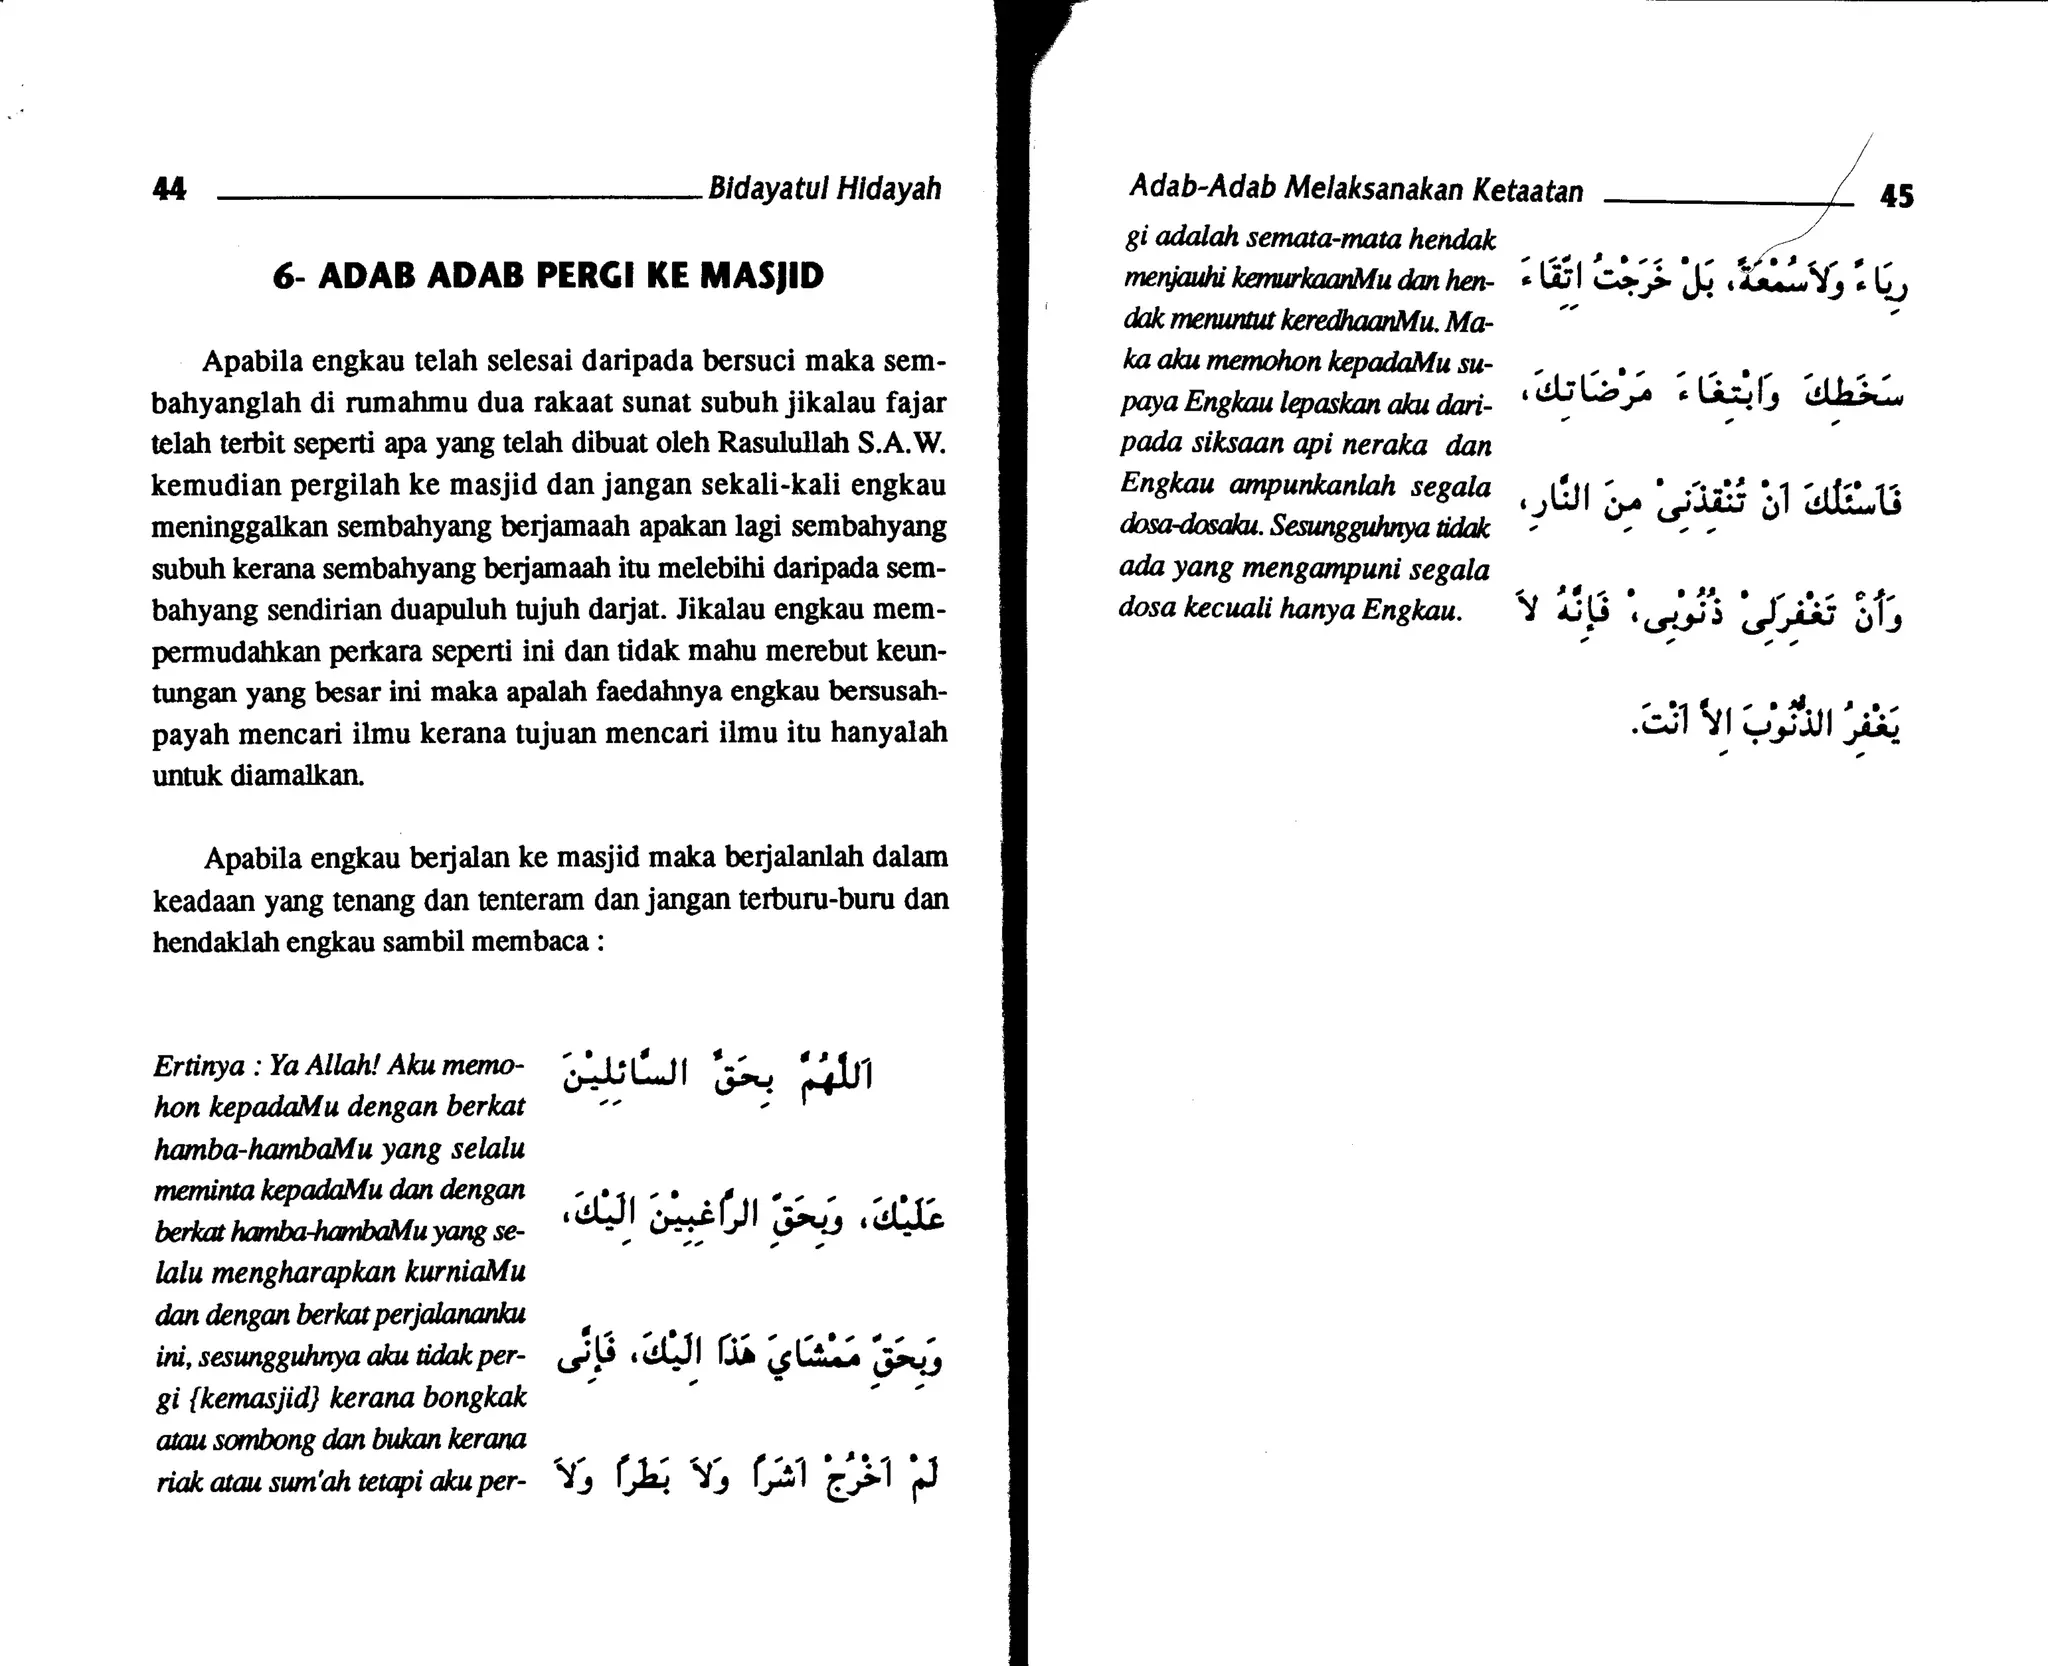 44 Bidayatul Hidayah
6- ADAB ADAB PERGI KE MASJID
Apabila engkau telah selesai daripada bersuci maka sem-
bahyanglah di rumahmu dua rakaat sunat subuh jikalau fajar
telah terbit seperti apa yang telah dibuat oleh Rasulullah S.A.W.
kemudian pergilah ke masjid dan jangan sekali-kali engkau
meninggalkan sembahyang berjamaah apakan lagi sembahyang
subuh kerana sembahyang berjamaah itu melebihi daripada sem-
bahyang sendirian duapuluh tujuh darjat. Jikalau engkau mem-
permudahkan perkara seperti ini dan tidak mahu merebut keun-
tungan yang besar ini maka apalah faedahnya engkau bersusah-
payah mencari ilmu kerana tujuan mencari ilmu itu hanyalah
untuk diamalkan.
Apabila engkau berjalan ke masjid maka berjalanlah dalam
keadaan yang tenang dan tenteram dan jangan terburu-buru dan
hendaklah engkau sambil membaca :
Ertinya : Ya Allah! Aku memo-
hon kepadaMu dengan berkat
hamba-hambaMu yang selalu
meminta kepadaMu dan dengan
berkat hamba-hambaMu yang se-
lalu mengharapkan kurniaMu
dan dengan berkat perjalananku
ini, sesungguhnya aku tidak per-
gi {kemasjid} kerana bongkak
atau sombong dan bukan kerana
riak atau sum'ah tetapi aku per-
اَللّٰهُمَّ بِحَقِّ السَّائِلِيْنَ
عَلَيْكَ، وَبِحَقِّ الرَّاغِبِيْنَ اِلَيْكَ،
وَبِحَقِّ مَمْشَايَ هَذَا اِلَيْكَ، فَاِنِّى
لَمْ اَخْرُجْ اَشَرًا وَلاَ بَطَرًا وَلاَ
Adab-Adab Melaksanakan Ketaatan 45
gi adalah semata-mata hendak
menjauhi kemurkaanMu dan hen-
dak menuntut keredhaanMu. Ma-
ka aku memohon kepadaMu su-
paya Engkau lepaskan aku dari-
pada siksaan api neraka dan
Engkau ampunkanlah segala
dosa-dosaku. Sesungguhnya tidak
ada yang mengampuni segala
dosa kecuali hanya Engkau.
رِيَاءً وَلاَسُمْعَةً، بَلْ خَرَجْتُ اتِّقَاءَ
سَخَطِكَ وَابْتِغَاءَ مَرْضَاتِكَ،
فَاَسْئَلُكَ اَنْ تُنْقِذَنِىْ مِنَ النَّارِ،
وَأَنْ تَغْفِرَلِىْ ذُنُوْبِى، فَإِنَّهُ لاَ
يَغْفِرُ الذُّنُوْبَ اِلاَّ اَنْتَ.